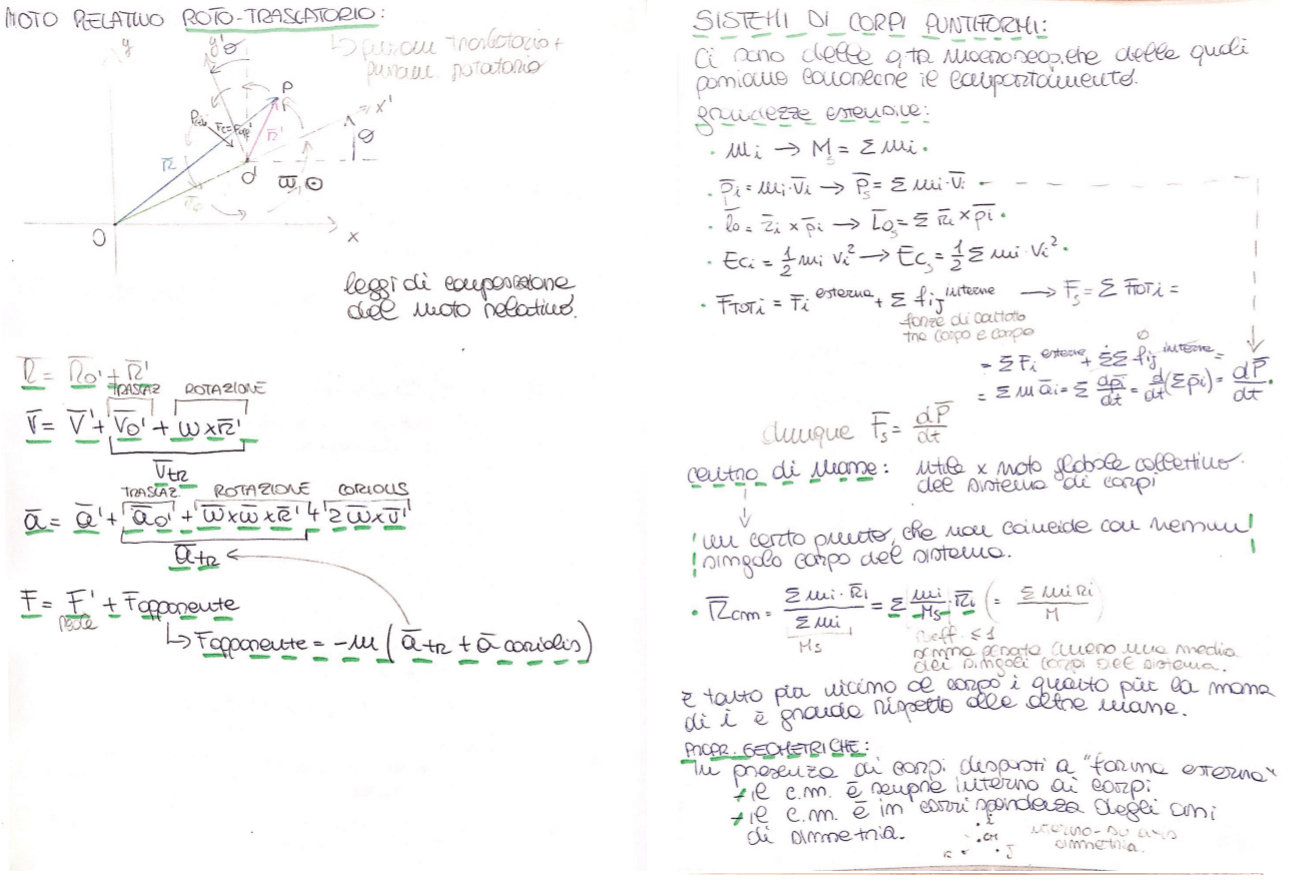 MOTO RELATIVO ROTO-TRASLATORIO:
↳ puram traslatorio +
puram. rotatorio
y
y'
θ
P
x'
r̄'
θ
R̄
O'
ω̄, ⊙
O
x
leggi di composizione
del moto relativo.
R̄ = R̄o' + R̄'
TRASLAZ ROTAZIONE
V̄ = V̄' + V̄o' + ω x r̄'
V̄tr
TRASLAZ. ROTAZIONE CORIOLIS
ā = ā' + āo' + ω̄ x ω̄ x r̄' + 2 ω̄ x v̄'
ātr
F̄ = F̄' + F̄apparente
reale
↳ F̄apparente = -m (ātr + ā coriolis)
SISTEMI DI CORPI PUNTIFORMI:
Ci sono delle q.tà macroscopiche delle quali
possiamo conoscere il comportamento.
grandezze estensive:
· mi → Ms = Σ mi.
· p̄i = mi · v̄i → P̄s = Σ mi · v̄i
· l̄o = r̄i x p̄i → L̄os = Σ r̄i x p̄i.
· Eci = 1/2 mi vi² → Ecs = 1/2 Σ mi vi².
· FTOTi = Fi esterne + Σ fij interne → F̄s = Σ FTOTi =
forze di contatto
tra corpo e corpo
0
= Σ Fi esterne + ΣΣ fij interne =
= Σ m āi = Σ dp̄i/dt = d/dt (Σ p̄i) = dP̄/dt.
dunque F̄s = dP̄/dt
centro di massa: utile x moto globale collettivo
del sistema di corpi
↓
! un certo punto, che non coincide con nessun !
! singolo corpo del sistema. !
· R̄cm = Σ mi · R̄i / Σ mi = Σ mi/Ms · R̄i (= Σ mi Ri / M)
Ms
coeff. ≤ 1
somma pesata ovvero una media
dei singoli corpi del sistema.
è tanto più vicino al corpo i quanto più la massa
di i è grande rispetto alle altre masse.
PROPR. GEOMETRICHE:
In presenza di corpi disposti a "forma esterna"
+ il c.m. è sempre interno ai corpi.
+ il c.m. è in corrispondenza degli assi
di simmetria.
i
· CM
k
· j
interno - su asse
simmetria.